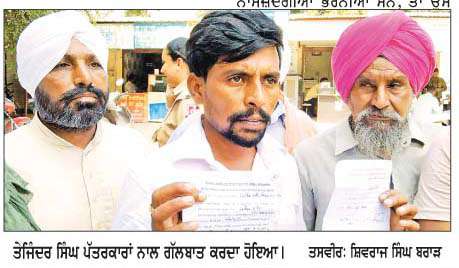 ਨਾਮਜ਼ਦਗੀਆਂ ਭਰਨੀਆਂ ਸਨ, ਤਾਂ ਉਸ
ਤੇਜਿੰਦਰ ਸਿੰਘ ਪੱਤਰਕਾਰਾਂ ਨਾਲ ਗੱਲਬਾਤ ਕਰਦਾ ਹੋਇਆ। ਤਸਵੀਰ: ਸ਼ਿਵਰਾਜ ਸਿੰਘ ਬਰਾੜ